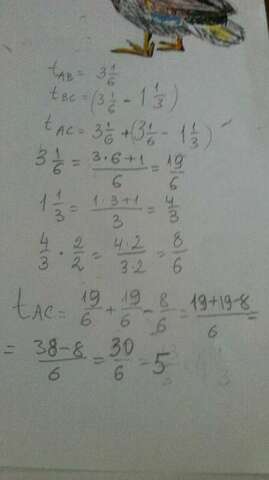 t_AB = 3 1/6
t_BC = (3 1/6 - 1 1/3)
t_AC = 3 1/6 + (3 1/6 - 1 1/3)
3 1/6 = (3·6+1)/6 = 19/6
1 1/3 = (1·3+1)/3 = 4/3
4/3 · 2/2 = (4·2)/(3·2) = 8/6
t_AC = 19/6 + 19/6 - 8/6 = (19+19-8)/6 =
= (38-8)/6 = 30/6 = 5